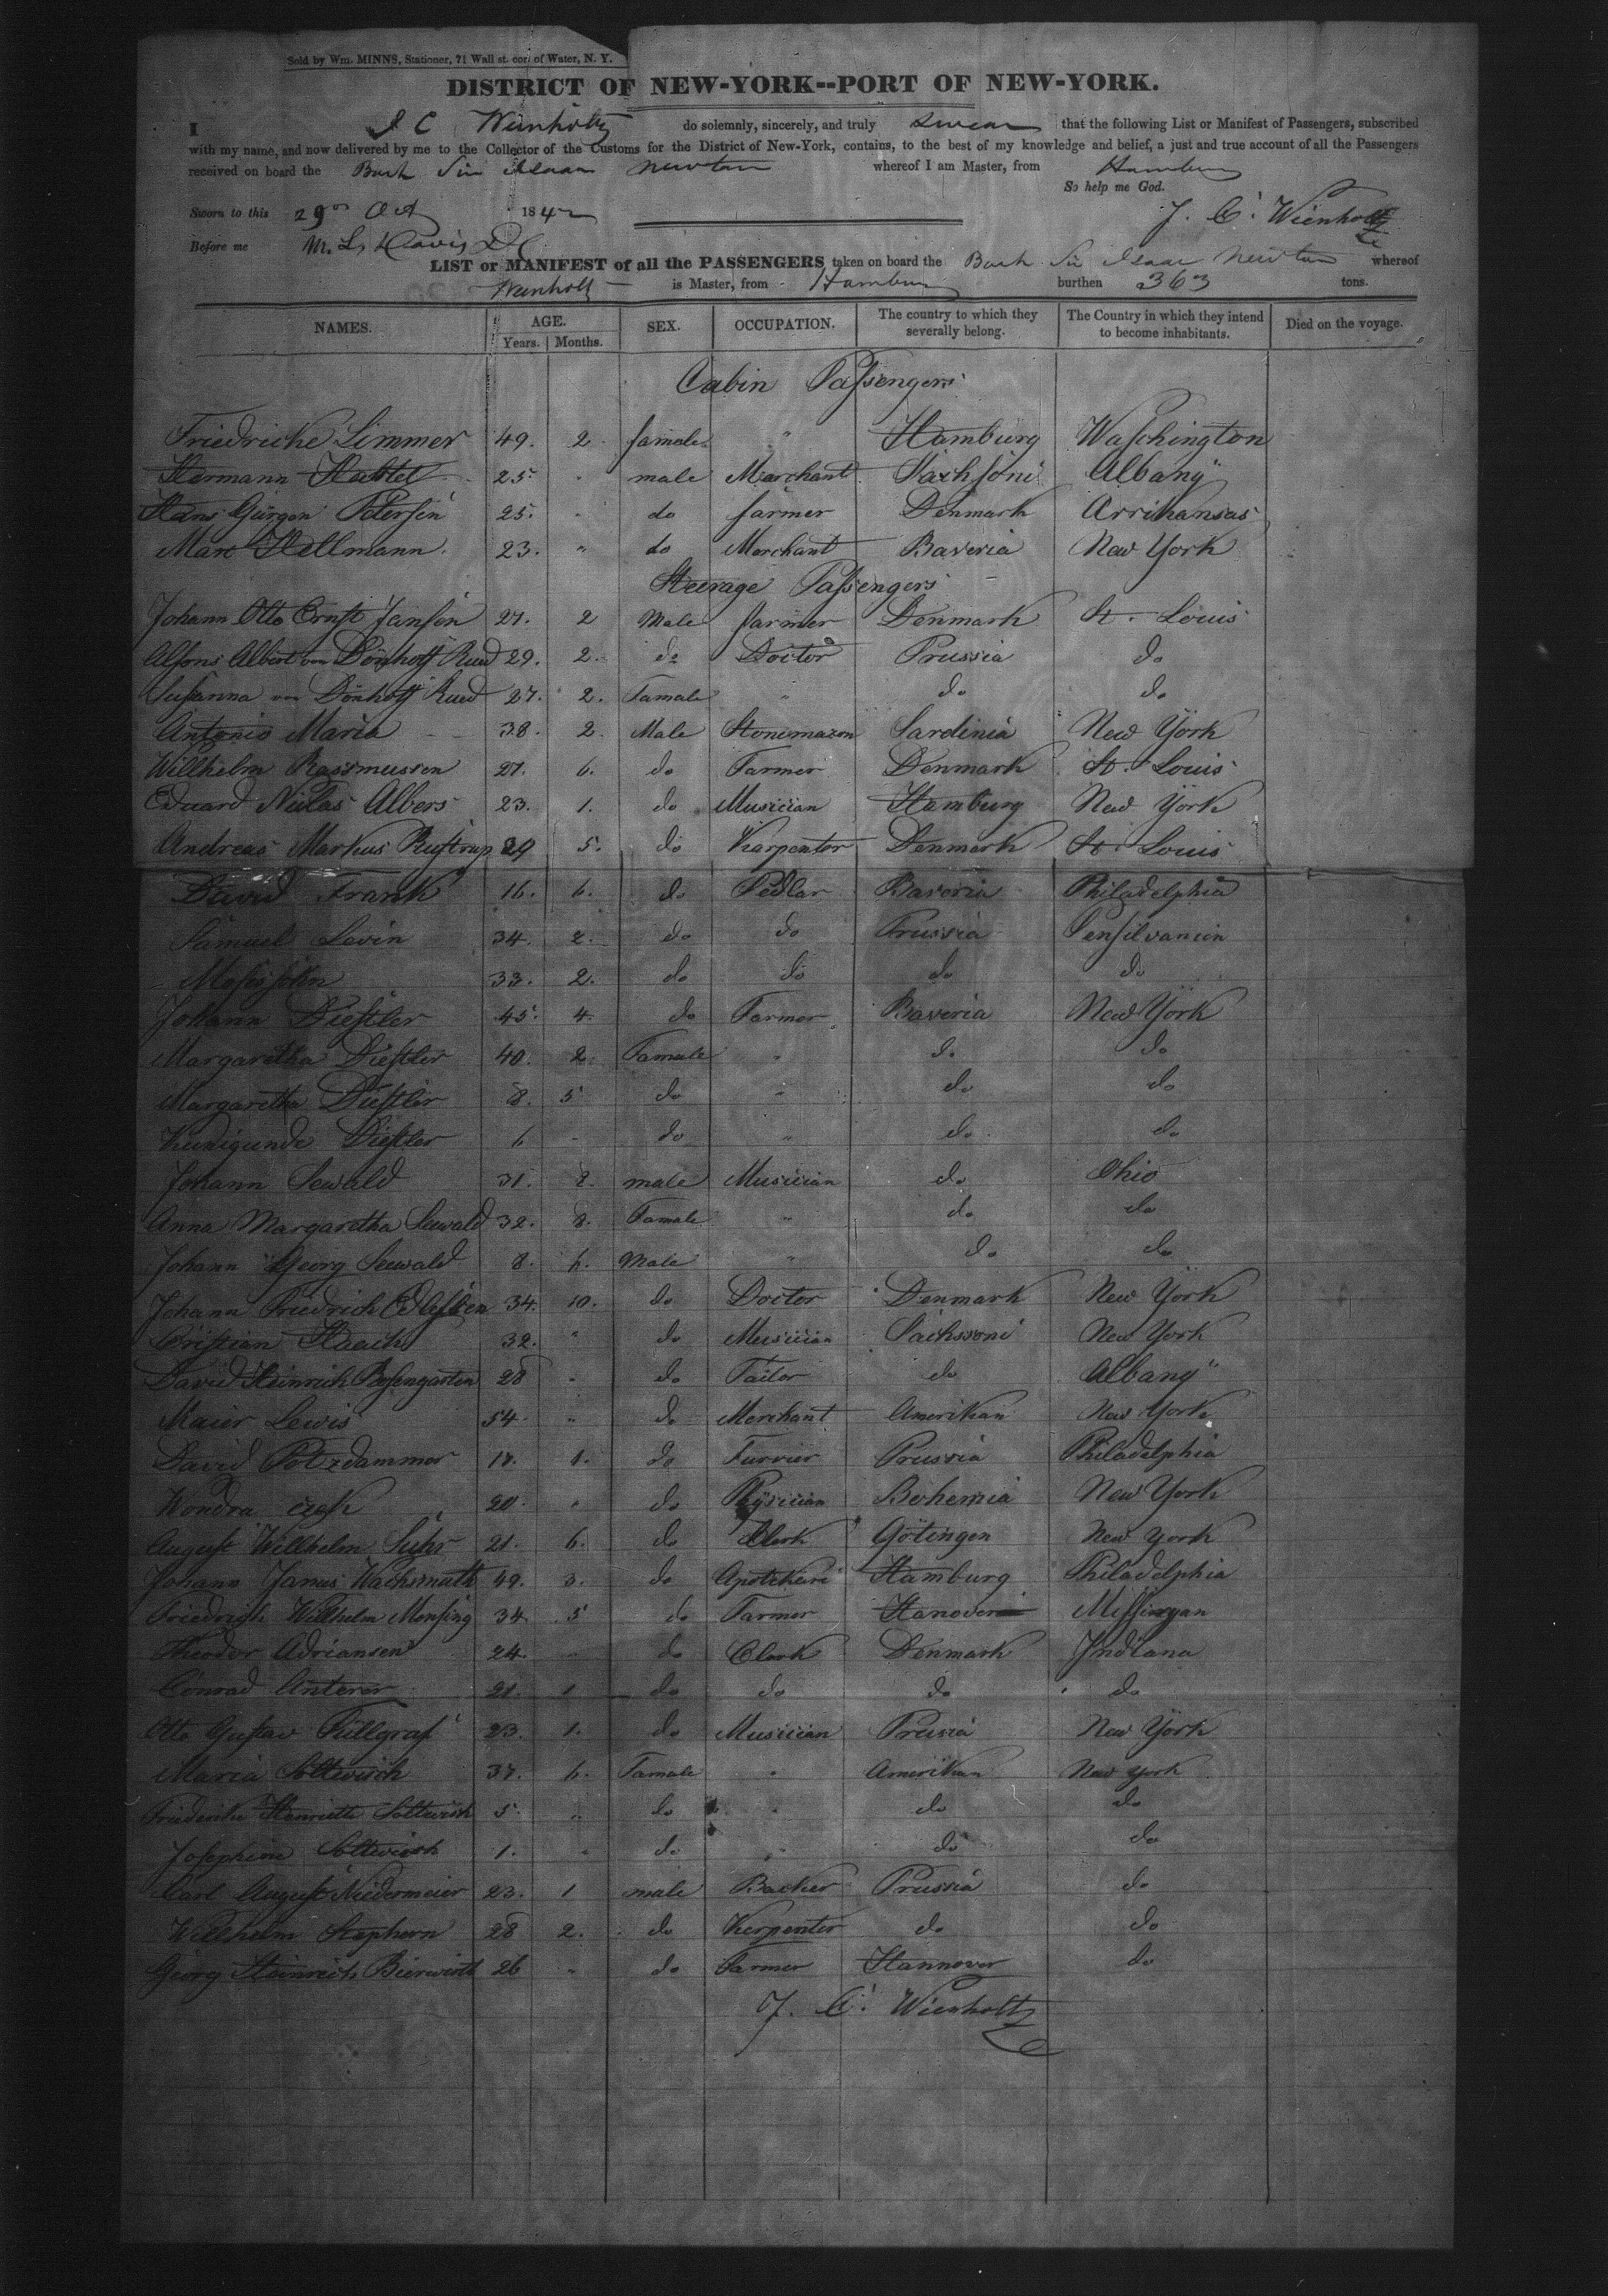 Sold by Wm. MINNS, Stationer, 71 Wall st. cor. of Water, N. Y.
DISTRICT OF NEW-YORK--PORT OF NEW-YORK.
I J C Wienholtz do solemnly, sincerely, and truly swear that the following List or Manifest of Passengers, subscribed
with my name, and now delivered by me to the Collector of the Customs for the District of New-York, contains, to the best of my knowledge and belief, a just and true account of all the Passengers
received on board the Bark Sir Isaac Newton whereof I am Master, from Hamburg
So help me God.
Sworn to this 29 Oct 1842 J. C. Wienholtz
Before me
LIST or MANIFEST of all the PASSENGERS taken on board the Bark Sir Isaac Newton whereof
Wienholtz is Master, from Hamburg burthen 363 tons.
NAMES. AGE. SEX. OCCUPATION. The country to which they severally belong. The Country in which they intend to become inhabitants. Died on the voyage.
Years. Months.
Cabin Passengers
Friedricke Limmer 49. 2. female " Hamburg Waschington
Hermann 25. " male Marchant Sachsoni Albany
Hans Gürgen Petersen 25. " do farmer Denmark Arrikansas
Marc Hellmann. 23. " do Merchant Baveria New York
Steerage Passengers
Johann Otto Ernst Jansen 27. 2 Male farmer Denmark St. Louis
Alfons Albert von Dönhoff Rued 29. 2. do Doctor Prussia do
Susanna von Dönhoff Rued 27. 2. Famale " do do
Antonio Maria 38. 2. Male Stonemazon Sardinia New York
Willhelm Rassmussen 27. 6. do Farmer Denmark St. Louis
Eduard Niclas Albers 23. 1. do Musician Hamburg New York
Andreas Markus 29 5. do Karpenter Denmark St. Louis
David Frank 16. 6. do Pedlar Baveria Philadelphia
Samuel Levin 34. 2. do do Prussia Pensilvanien
33. 2. do do do do
Johann Diestler 45. 4. do Farmer Baveria New York
Margaretha Diestler 40. 2. Famale " do do
Margaretha Diestler 8. 5 do " do do
Kunigunde Diestler 6 - do " do do
Johann Sewald 31. 8. male Musician do Ohio
Anna Margaretha Seewald 32. 8. Famale " do do
Johann Georg Seewald 8. 6. Male " do do
Johann Friedrich 34. 10. do Doctor Denmark New York
Cristian 32. " do Musician Sachssoni New York
David Heinrich 28 " do Tailor do Albany
Maier Lewis 54. " do Merchant Amerikan New York
David Potzdammer 17. 1. do Furrier Prussia Philadelphia
Wondra 20. " do Bohemia New York
August Willhelm Suhr 21. 6. do Clerk Götingen New York
Johann Janus Wachsmuth 49. 3. do Hamburg Philadelphia
Friedrich Willhelm Mensing 34. 5 do Farmer Hanover
Theodor Adriansen 24. " do Clerk Denmark Indiana
Conrad 21. 1 do do do do
Otto Gustav Füllgraf 23. 1. do Musician Prusia New York
Maria Soltwisch 37. 6. Famale " Amerikan New York
Friederike Henriette Soltwisch 5. " do " do do
Josephine Soltwisch 1. " do " do do
Carl August Niedermeier 23. 1 male Backer Prussia do
Willhelm Stephorn 28 2. do Kerpenter do do
Georg Heinrich Bierwirth 26 " do Farmer Hannover do
J. C. Wienholtz